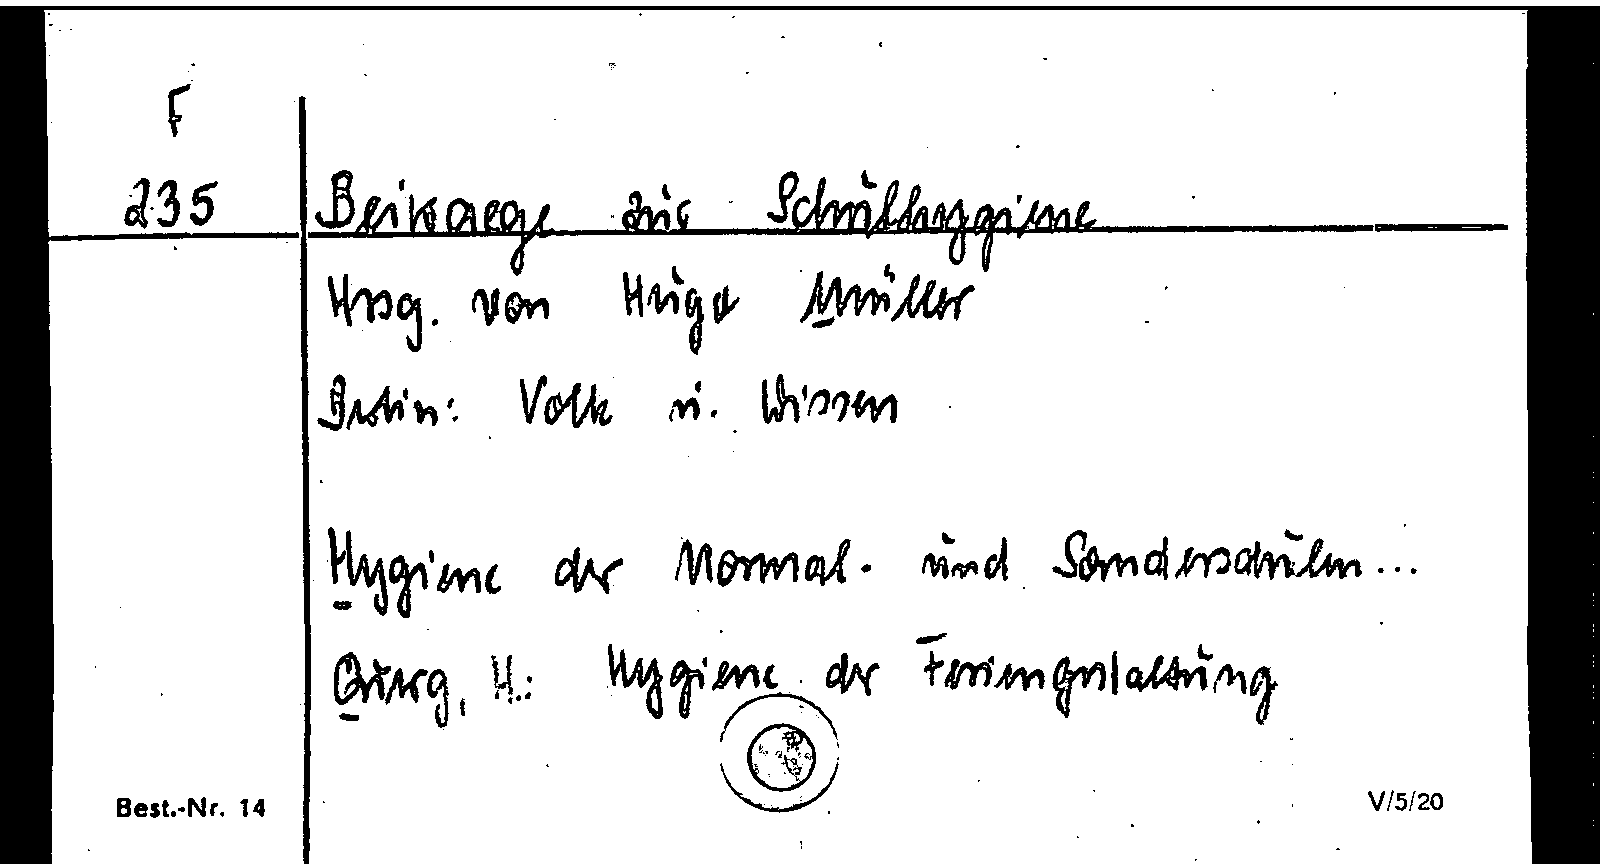 F
235 Beitraege zur Schulhygiene
Hrsg. von Hugo Müller
Berlin: Volk u. Wissen
Hygiene der Normal- und Sonderschulen...
H.: Hygiene der Feriengestaltung
Best.-Nr. 14 V/5/20